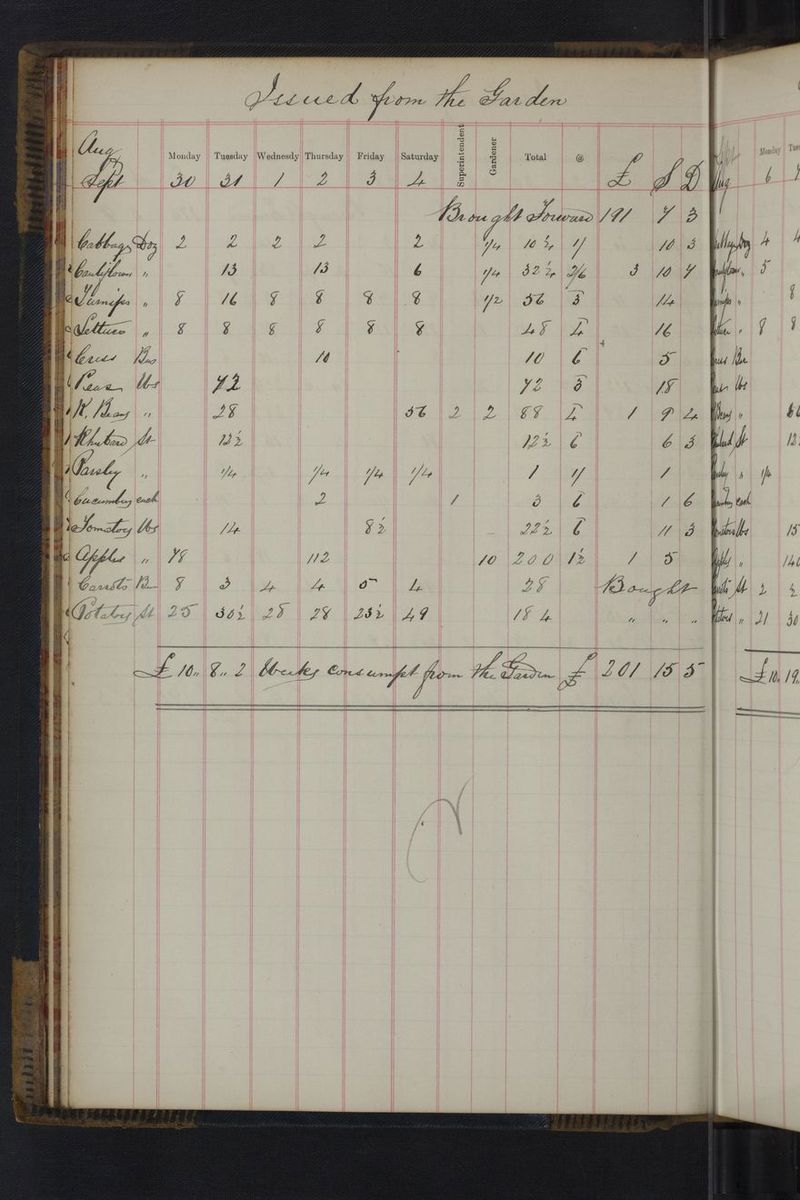 Issued from the Garden
Aug Sept Monday 30 Tuesday 31 Wednesdy 1 Thursday 2 Friday 3 Saturday 4 Superintendent Gardener Total @ £ S D
Brought Forward 191 7 3
Cabbage Doz 2 2 2 2 2 1/4 10 1/4 1/ 10 3
Cauliflower " 13 13 6 1/4 32 1/4 2/6 3 10 7
Turnips " 8 16 8 8 8 8 1/2 56 3 14
Lettuce " 8 8 8 8 8 8 48 4 16
Cress Bns 10 10 6 5
Peas lbs 72 72 3 18
K. Beans " 28 56 2 2 88 4 1 9 4
Rhubarb St 12 1/2 12 1/2 6 6 3
Parsley " 1/4 1/4 1/4 1/4 1 1/ 1
Cucumbers each 2 1 3 6 1 6
Tomatoes lbs 14 8 1/2 22 1/2 6 11 3
Apples " 78 112 10 200 1 1/2 1 5
Carrots Bn 8 3 4 4 5 4 28 Bought
Potatoes St 25 30 1/2 28 28 23 1/2 49 184 " " "
£ 10 " 8 " 2 Weeks consumpt from the Garden £ 201 15 5
Monday
Aug 6 7
4 4
5
8
8 8
lbs
"
St 12
1/4
each
lbs 15
" 140
St 2 2
" 21 30
£ 10 " 19 "